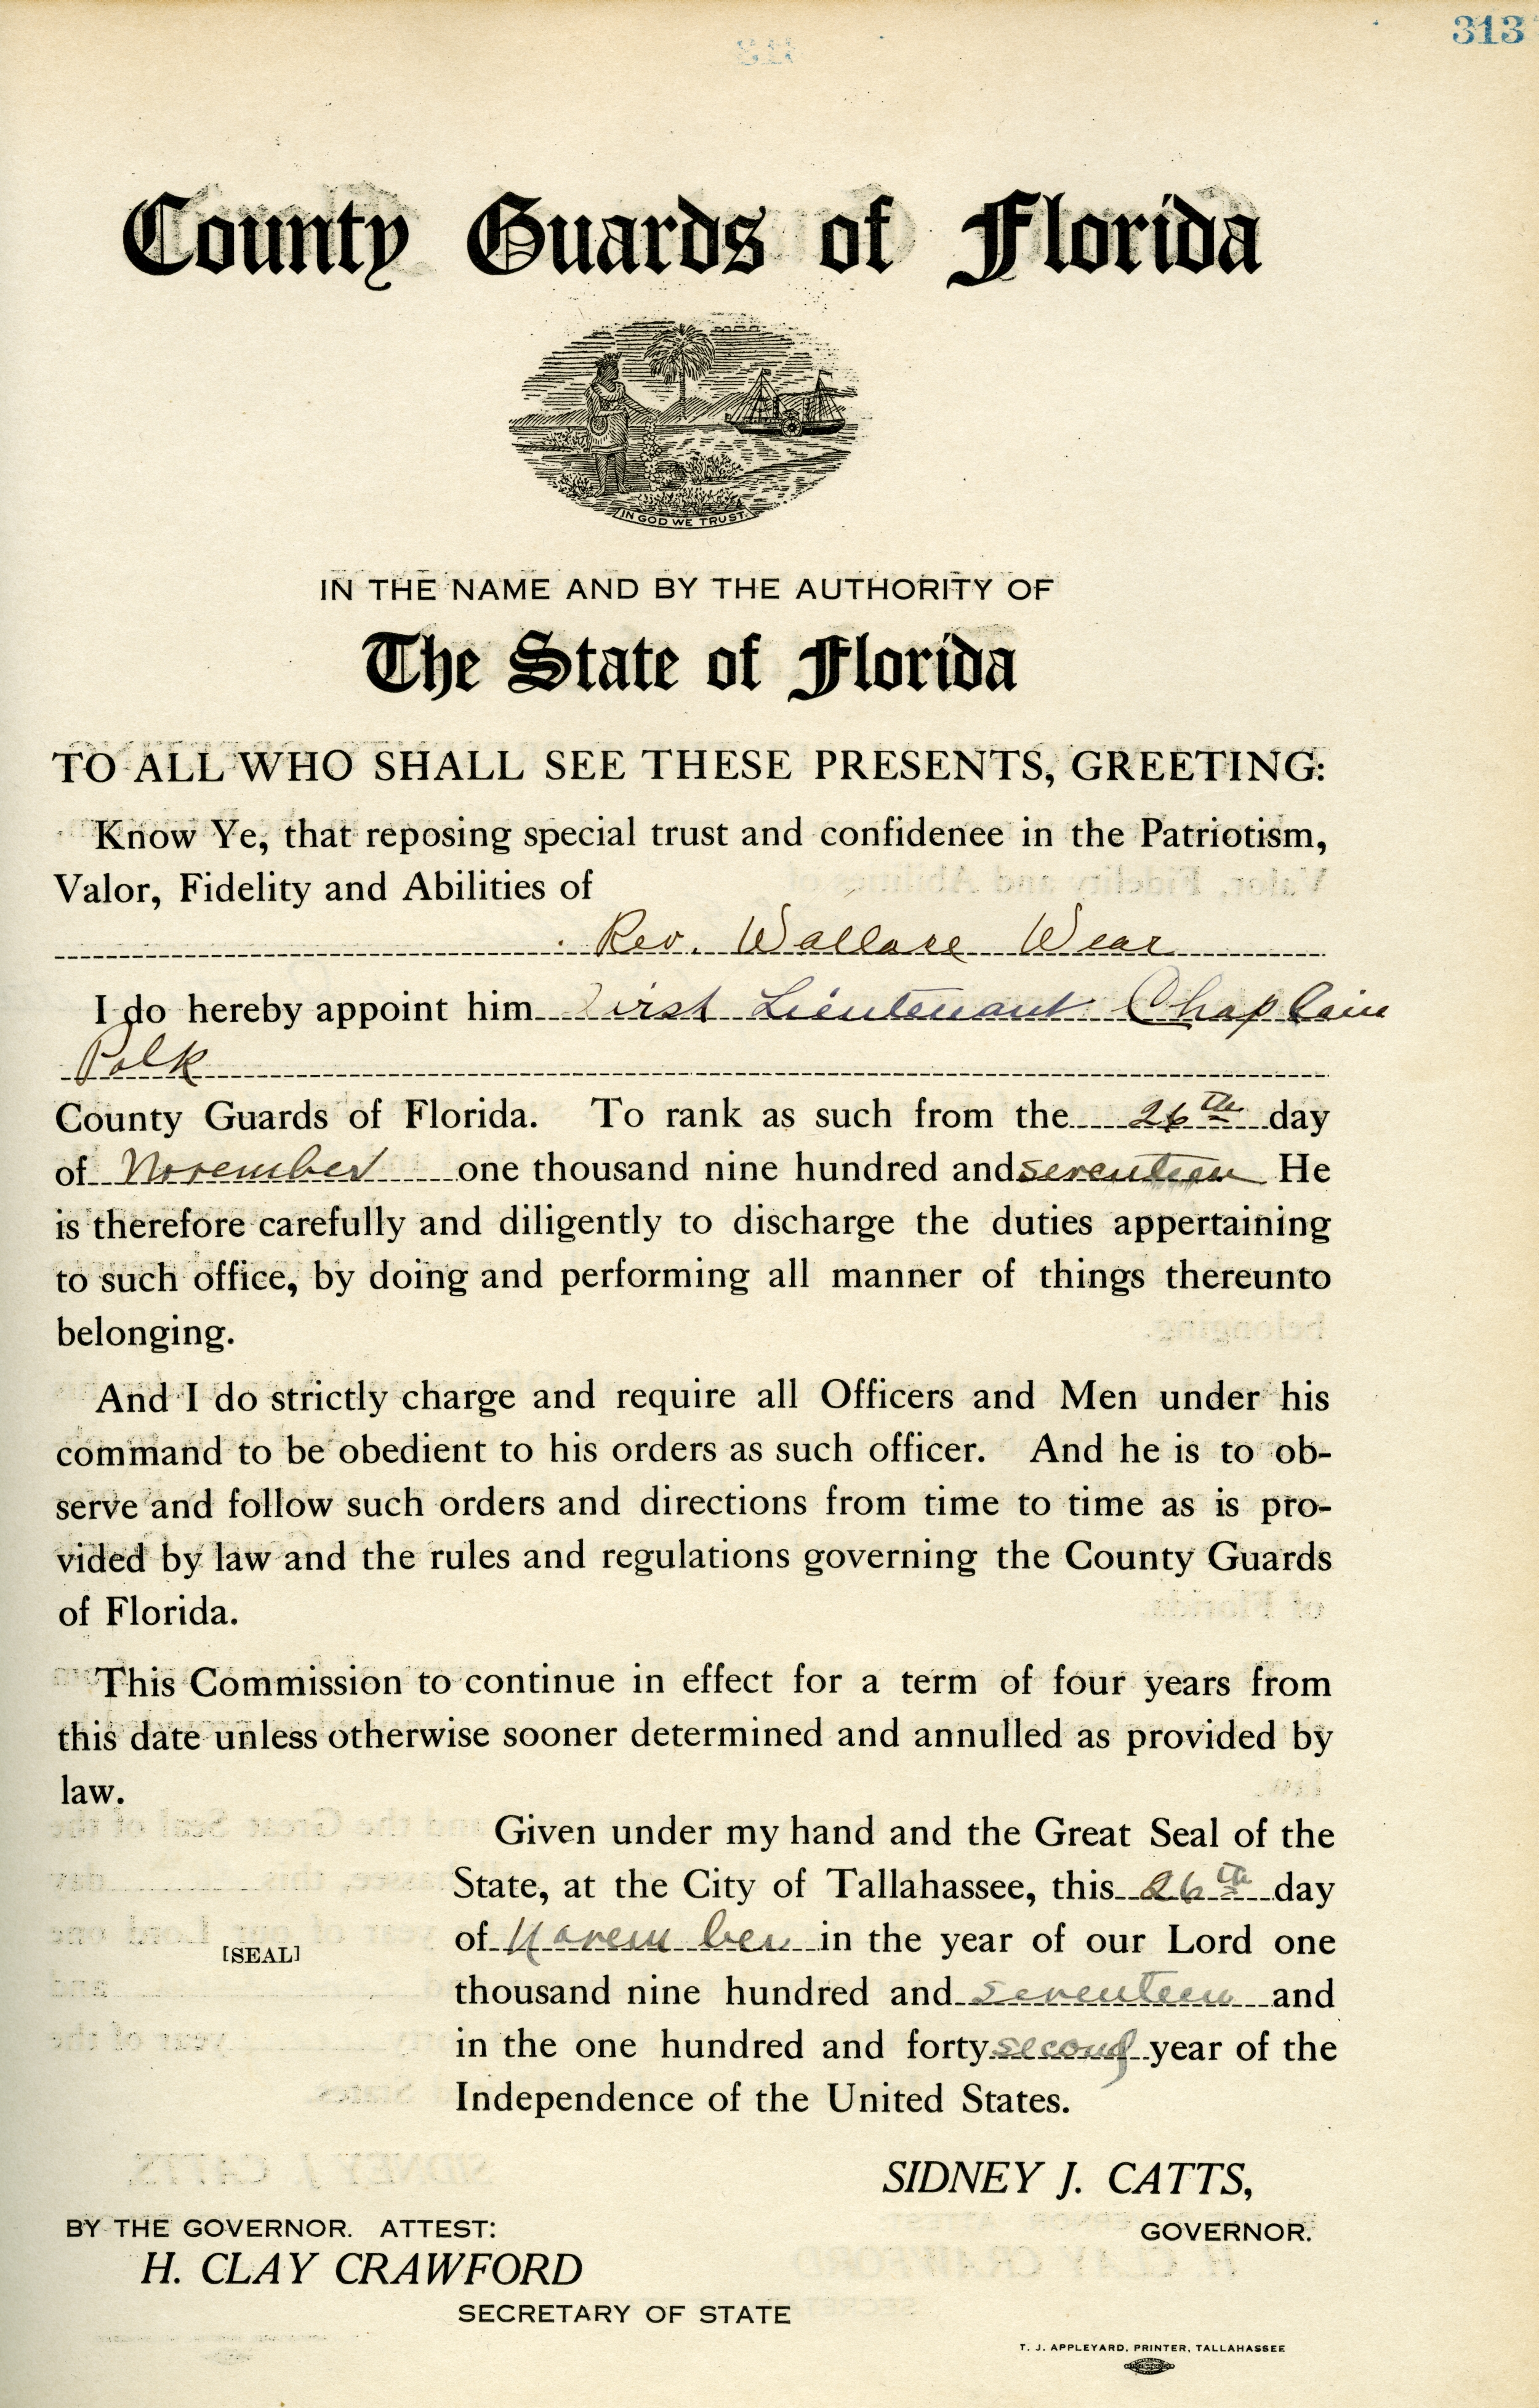 313
County Guards of Florida
IN GOD WE TRUST
IN THE NAME AND BY THE AUTHORITY OF
The State of Florida
TO ALL WHO SHALL SEE THESE PRESENTS, GREETING:
Know Ye, that reposing special trust and confidenee in the Patriotism,
Valor, Fidelity and Abilities of
Rev. Wallace Wear
I do hereby appoint him First Lieutenant Chaplain
Polk
County Guards of Florida. To rank as such from the 26th day
of November one thousand nine hundred and seventeen He
is therefore carefully and diligently to discharge the duties appertaining
to such office, by doing and performing all manner of things thereunto
belonging.
And I do strictly charge and require all Officers and Men under his
command to be obedient to his orders as such officer. And he is to ob-
serve and follow such orders and directions from time to time as is pro-
vided by law and the rules and regulations governing the County Guards
of Florida.
This Commission to continue in effect for a term of four years from
this date unless otherwise sooner determined and annulled as provided by
law.
Given under my hand and the Great Seal of the
State, at the City of Tallahassee, this 26th day
of November in the year of our Lord one
[SEAL]
thousand nine hundred and seventeen and
in the one hundred and forty second year of the
Independence of the United States.
SIDNEY J. CATTS,
BY THE GOVERNOR. ATTEST:
GOVERNOR.
H. CLAY CRAWFORD
SECRETARY OF STATE
T. J. APPLEYARD, PRINTER, TALLAHASSEE